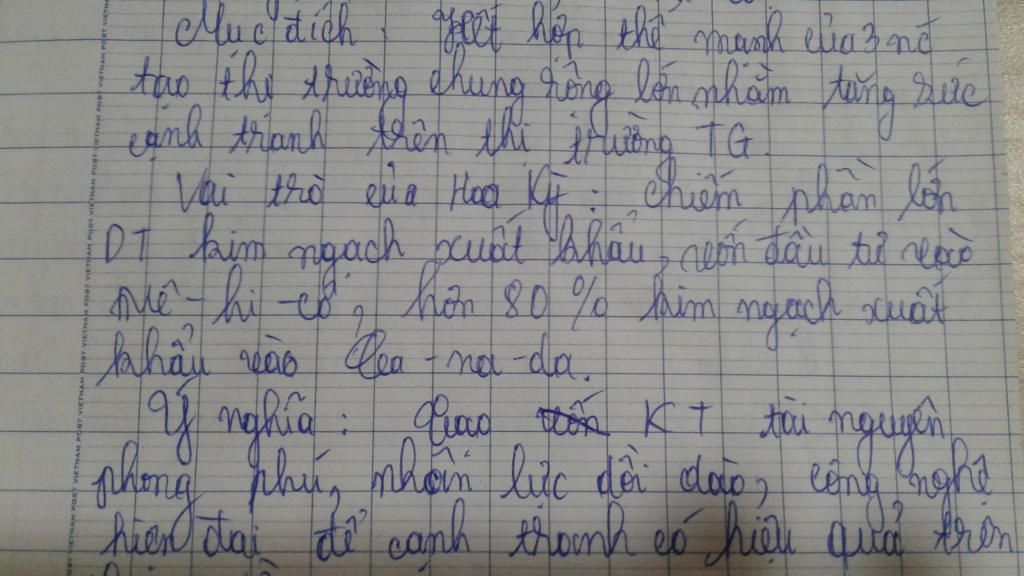 Mục đích: Kết hợp thế mạnh của 3 nc
tạo thị trường chung rộng lớn nhằm tăng sức
cạnh tranh trên thị trường TG
Vai trò của Hoa Kỳ: chiếm phần lớn
DT kim ngạch xuất khẩu, vốn đầu tư vào
Mê-hi-cô, hơn 80% kim ngạch xuất
khẩu vào Ca-na-da.
Ý nghĩa: KT tài nguyên
phong phú, nhân lực dồi dào, công nghệ
hiện đại để cạnh tranh có hiệu quả trên
VIETNAM POST VIETNAM POST VIETNAM POST VIETNAM POST